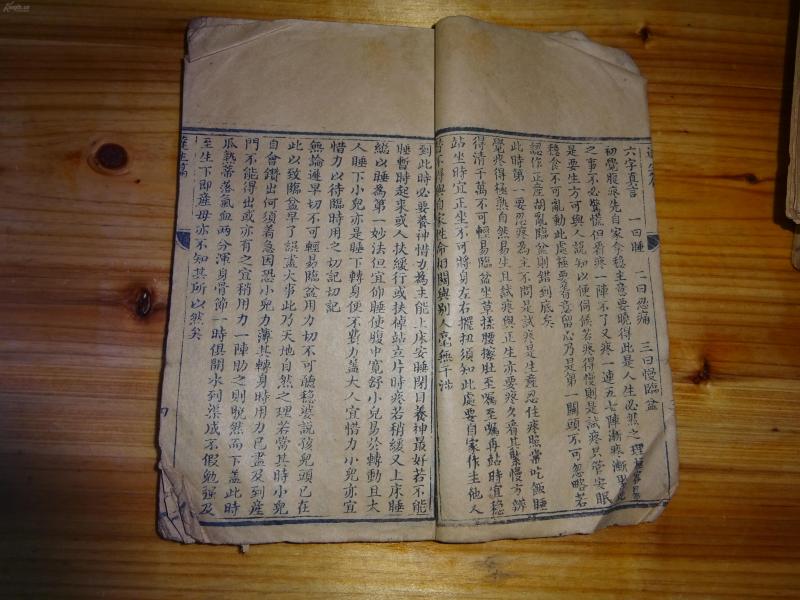 六字真言 一曰睡 二曰忍痛 三曰慢臨盆
初覺腹疼先自家拿穩主意要曉得此是人生必然之理
之事不必驚慌但看疼一陣不了又疼一連五七陣漸疼漸
是要生方可與人說知以便伺候若疼得慢則是試疼只管安眠
穩食不可亂動此處極要着意留心乃是第一關頭不可忽略若
認作正產胡亂臨盆則錯到底矣
此時第一要忍疼為主不問是試疼是生產忍住疼照常吃飯睡
覺疼得極熟自然易生且試疼與正生亦要疼久看其緊慢方辨
得清千萬不可輕易臨盆坐草揉腰擦肚至囑至囑再站時宜穩
站坐時宜正坐不可將身左右擺扭須知此處要自家作主他人
不得與自家性命相關與別人毫無干涉
到此時必要養神惜力為主能上床安睡閉目養神最好若不能
睡暫時起來或人扶緩行或扶掉站立片時疼若稍緩又上床睡
總以睡為第一妙法但宜仰睡使腹中寬舒小兒易於轉動且大
人睡下小兒亦是睡下轉身便不費力蓋大人宜惜力小兒亦宜
惜力以待臨時用之切記切記
無論遲早切不可輕易臨盆用力切不可聽穩婆說孩兒頭已在
此以致臨盆早了誤盡大事此乃天地自然之理若當其時小兒
自會鑽出何須着急因恐小兒力薄其轉身時用力已盡及到產
門不能得出或亦有之宜稍用力一陣助之則脫然而下蓋此時
瓜熟蒂落氣血兩分渾身骨節一時俱開水到渠成不假勉強及
至生下即產母亦不知其所以然矣
達生篇